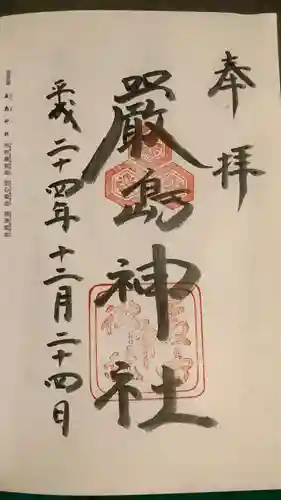 奉拝
嚴島神社
平成二十四年十二月二十四日